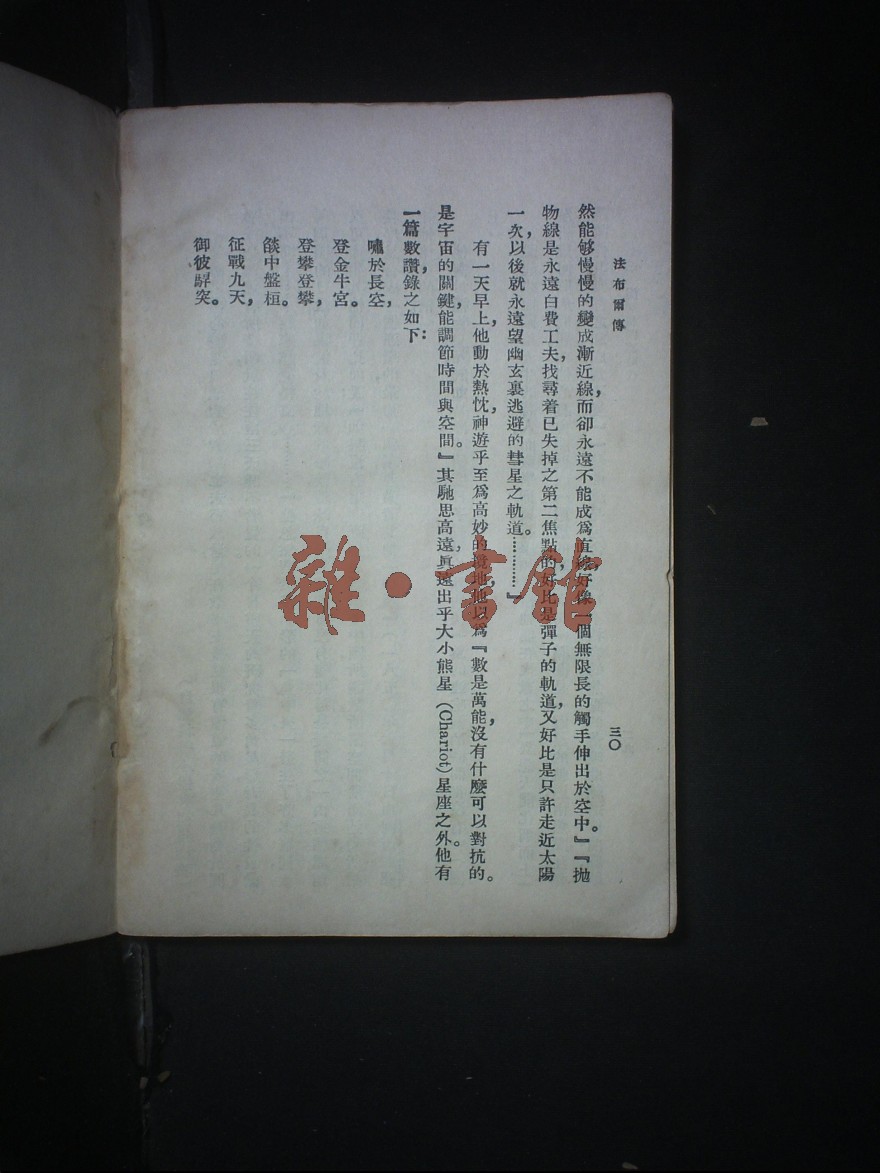 法布爾傳
三〇
然能够慢慢的變成漸近線，而卻永遠不能成爲直線，好像一個無限長的觸手伸出於空中。』『拋
物線是永遠白費工夫，找尋着已失掉之第二焦點的，好比是彈子的軌道，又好比是只許走近太陽
一次，以後就永遠望幽玄裏逃避的彗星之軌道。…………』
有一天早上，他動於熱忱，神遊乎至爲高妙的境地，他以爲『數是萬能，沒有什麼可以對抗的。
是宇宙的關鍵，能調節時間與空間。』其馳思高遠，眞遠出乎大小熊星（Chariot）星座之外。他有
一篇數讚，錄之如下：
嘯於長空，
登金牛宮。
登攀登攀，
燄中盤桓。
征戰九天，
御彼突。
雜·書館